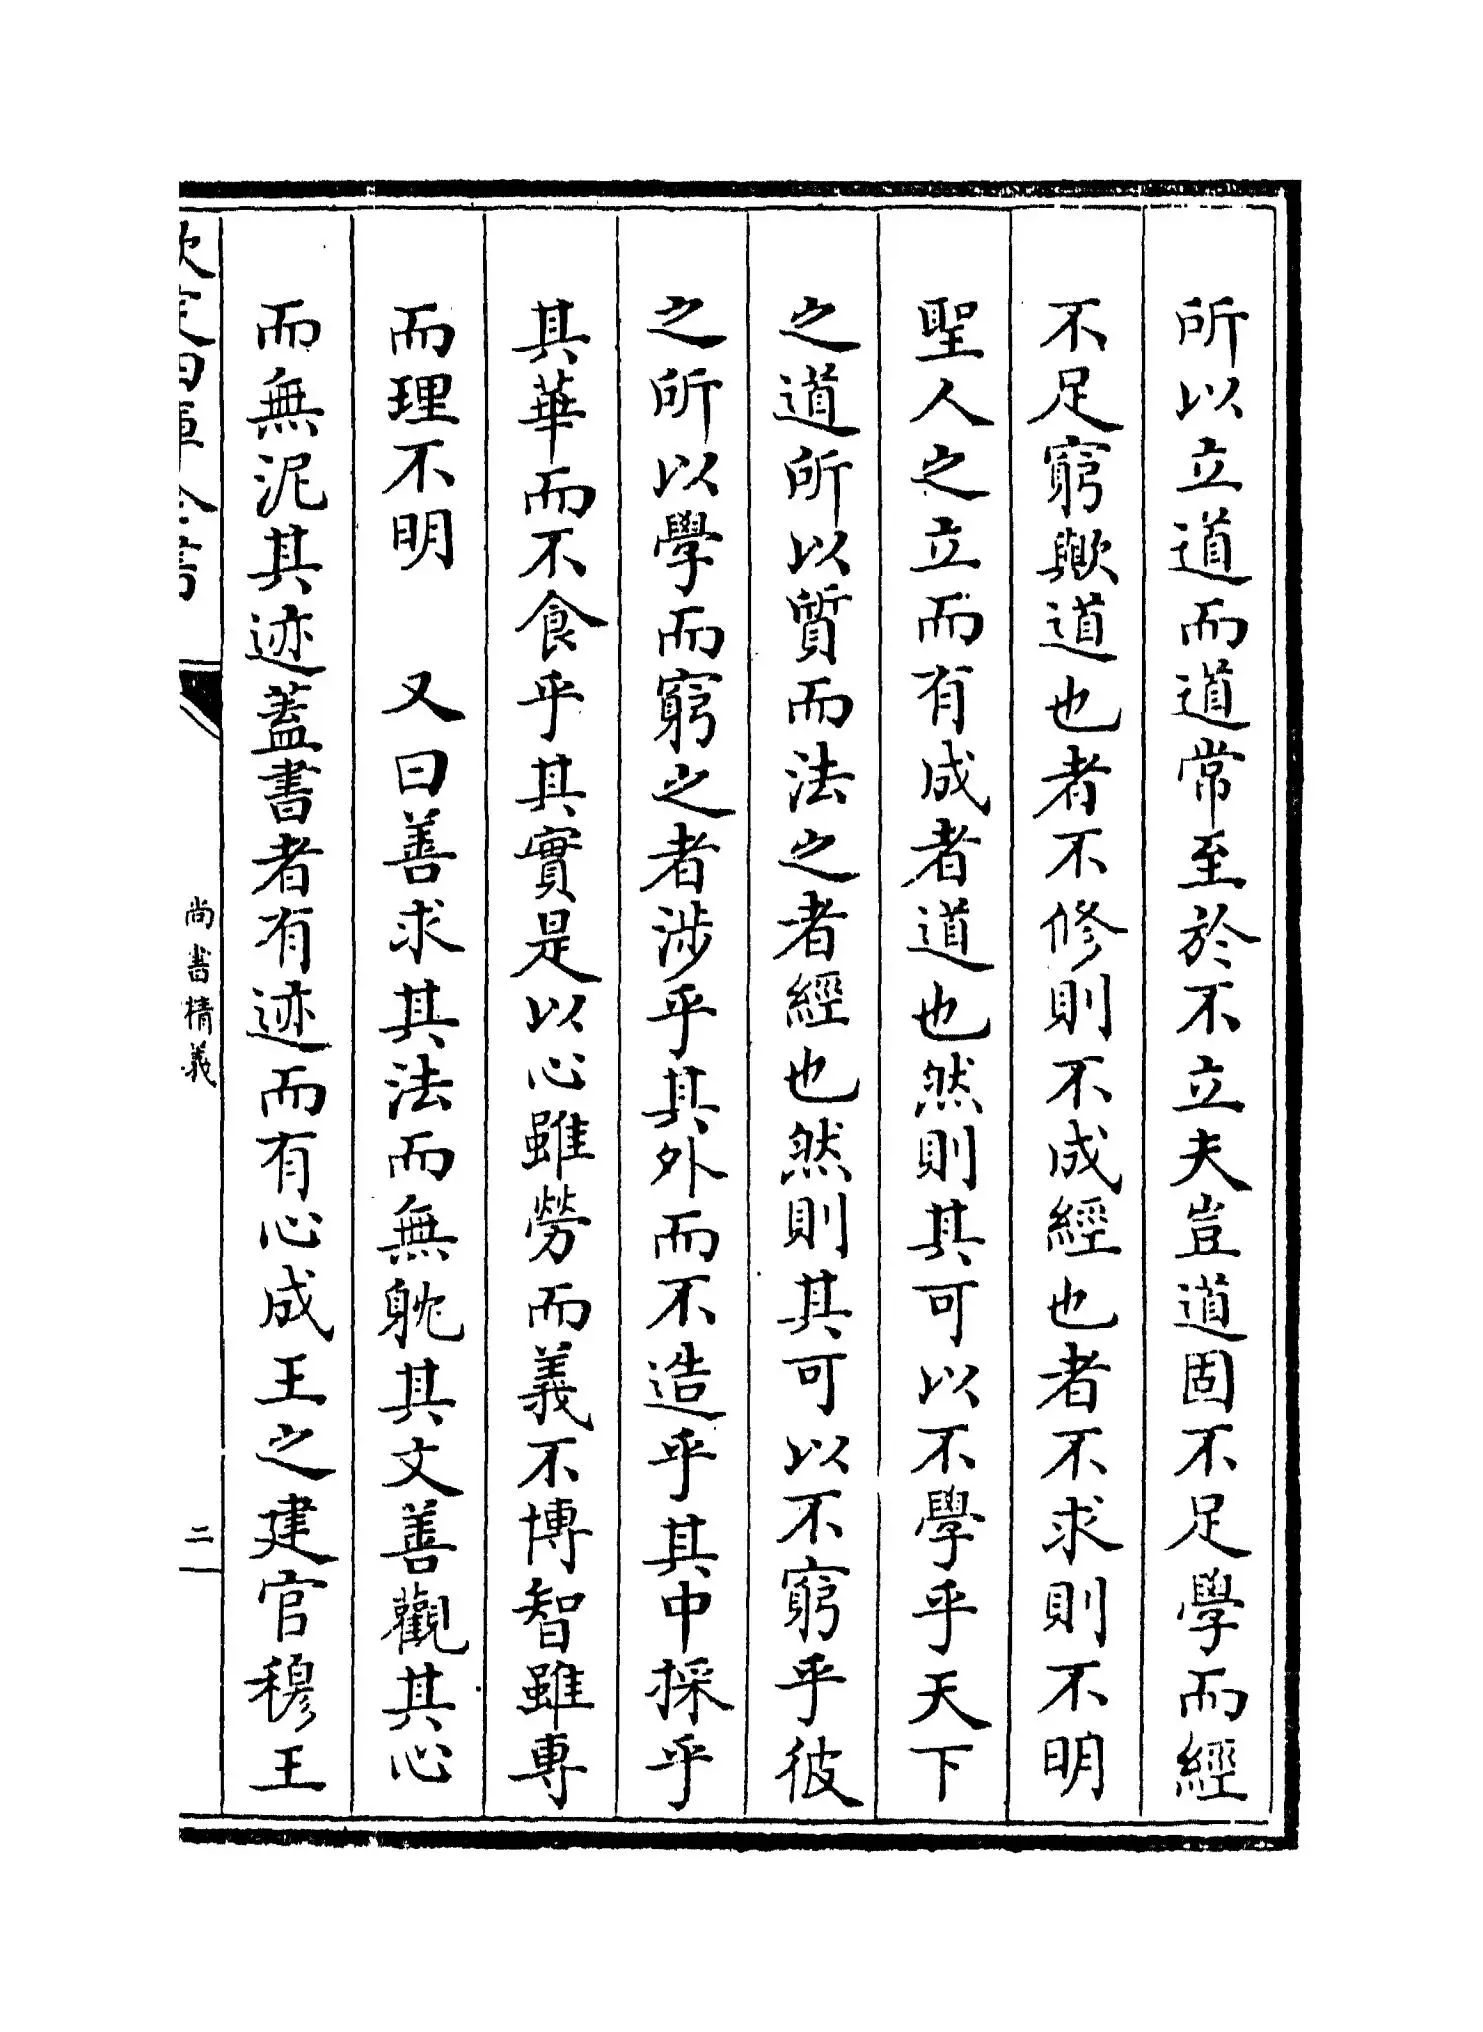 所以立道而道常至於不立夫豈道固不足學而經
不足窮歟道也者不修則不成經也者不求則不明
聖人之立而有成者道也然則其可以不學乎天下
之道所以質而法之者經也然則其可以不窮乎彼
之所以學而窮之者涉乎其外而不造乎其中採乎
其華而不食乎其實是以心雖勞而義不博智雖專
而理不明　又曰善求其法而無躭其文善觀其心
而無泥其迹蓋書者有迹而有心成王之建官穆王
欽定四庫全書
尚書精義
二